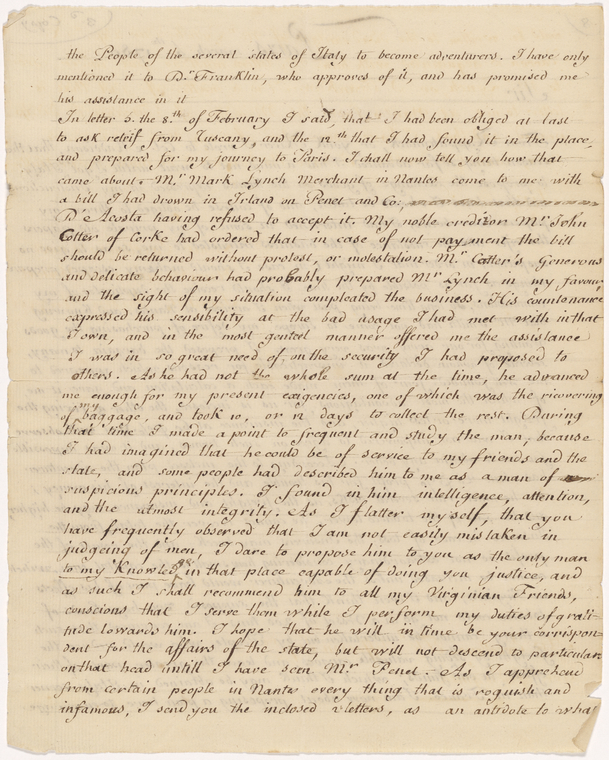 the People of the several states of Italy to become adventurers. I have only
mentioned it to Dr. Franklin, who approves of it, and has promised me
his assistance in it
In letter 5. the 8.th of February I said, that I had been obliged at last
to ask releif from Tuscany, and the 12.th that I had found it in the place,
and prepared for my journey to Paris. I shall now tell you how that
came about. Mr. Mark Lynch Merchant in Nantes come to me with
a bill I had drown in Irland on Penet and Co.
D'Acosta having refused to accept it. My noble creditor Mr. John
Cotter of Corke had ordered that in case of not payment the bill
should be returned without protest, or molestation. Mr. Cotter's generous
and delicate behaviour had probably prepared Mr. Lynch in my favour
and the sight of my situation compleated the business. His countenance
expressed his sensibility at the bad usage I had met with in that
Town, and in the most genteel manner offered me the assistance
I was in so great need of, on the security I had proposed to
others. As he had not the whole sum at the time, he advanced
me enough for my present exigencies, one of which was the ricovering
of my baggage, and took 10, or 12 days to collect the rest. During
that time I made a point to frequent and study the man, because
I had imagined that he could be of service to my friends and the
state, and some people had described him to me as a man of
suspicious principles. I found in him intelligence, attention,
and the utmost integrity. As I flatter myself, that you
have frequently observed that I am not easily mistaken in
judgeing of men, I dare to propose him to you as the only man
to my Knowledge in that place capable of doing you justice, and
as such I shall recommend him to all my Virginian Friends,
conscious that I serve them while I perform my duties of grati-
tude towards him. I hope that he will in time be your corrispon-
dent for the affairs of the state, but will not descend to particulars
on that head intill I have seen Mr. Penet. As I apprehend
from certain people in Nantes every thing that is roguish and
infamous, I send you the inclosed 2 letters, as an antidote to what